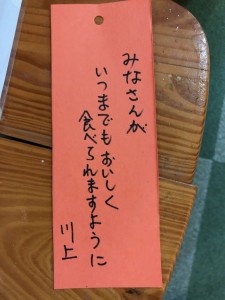 みなさんが
いつまでもおいしく
食べられますように
川上